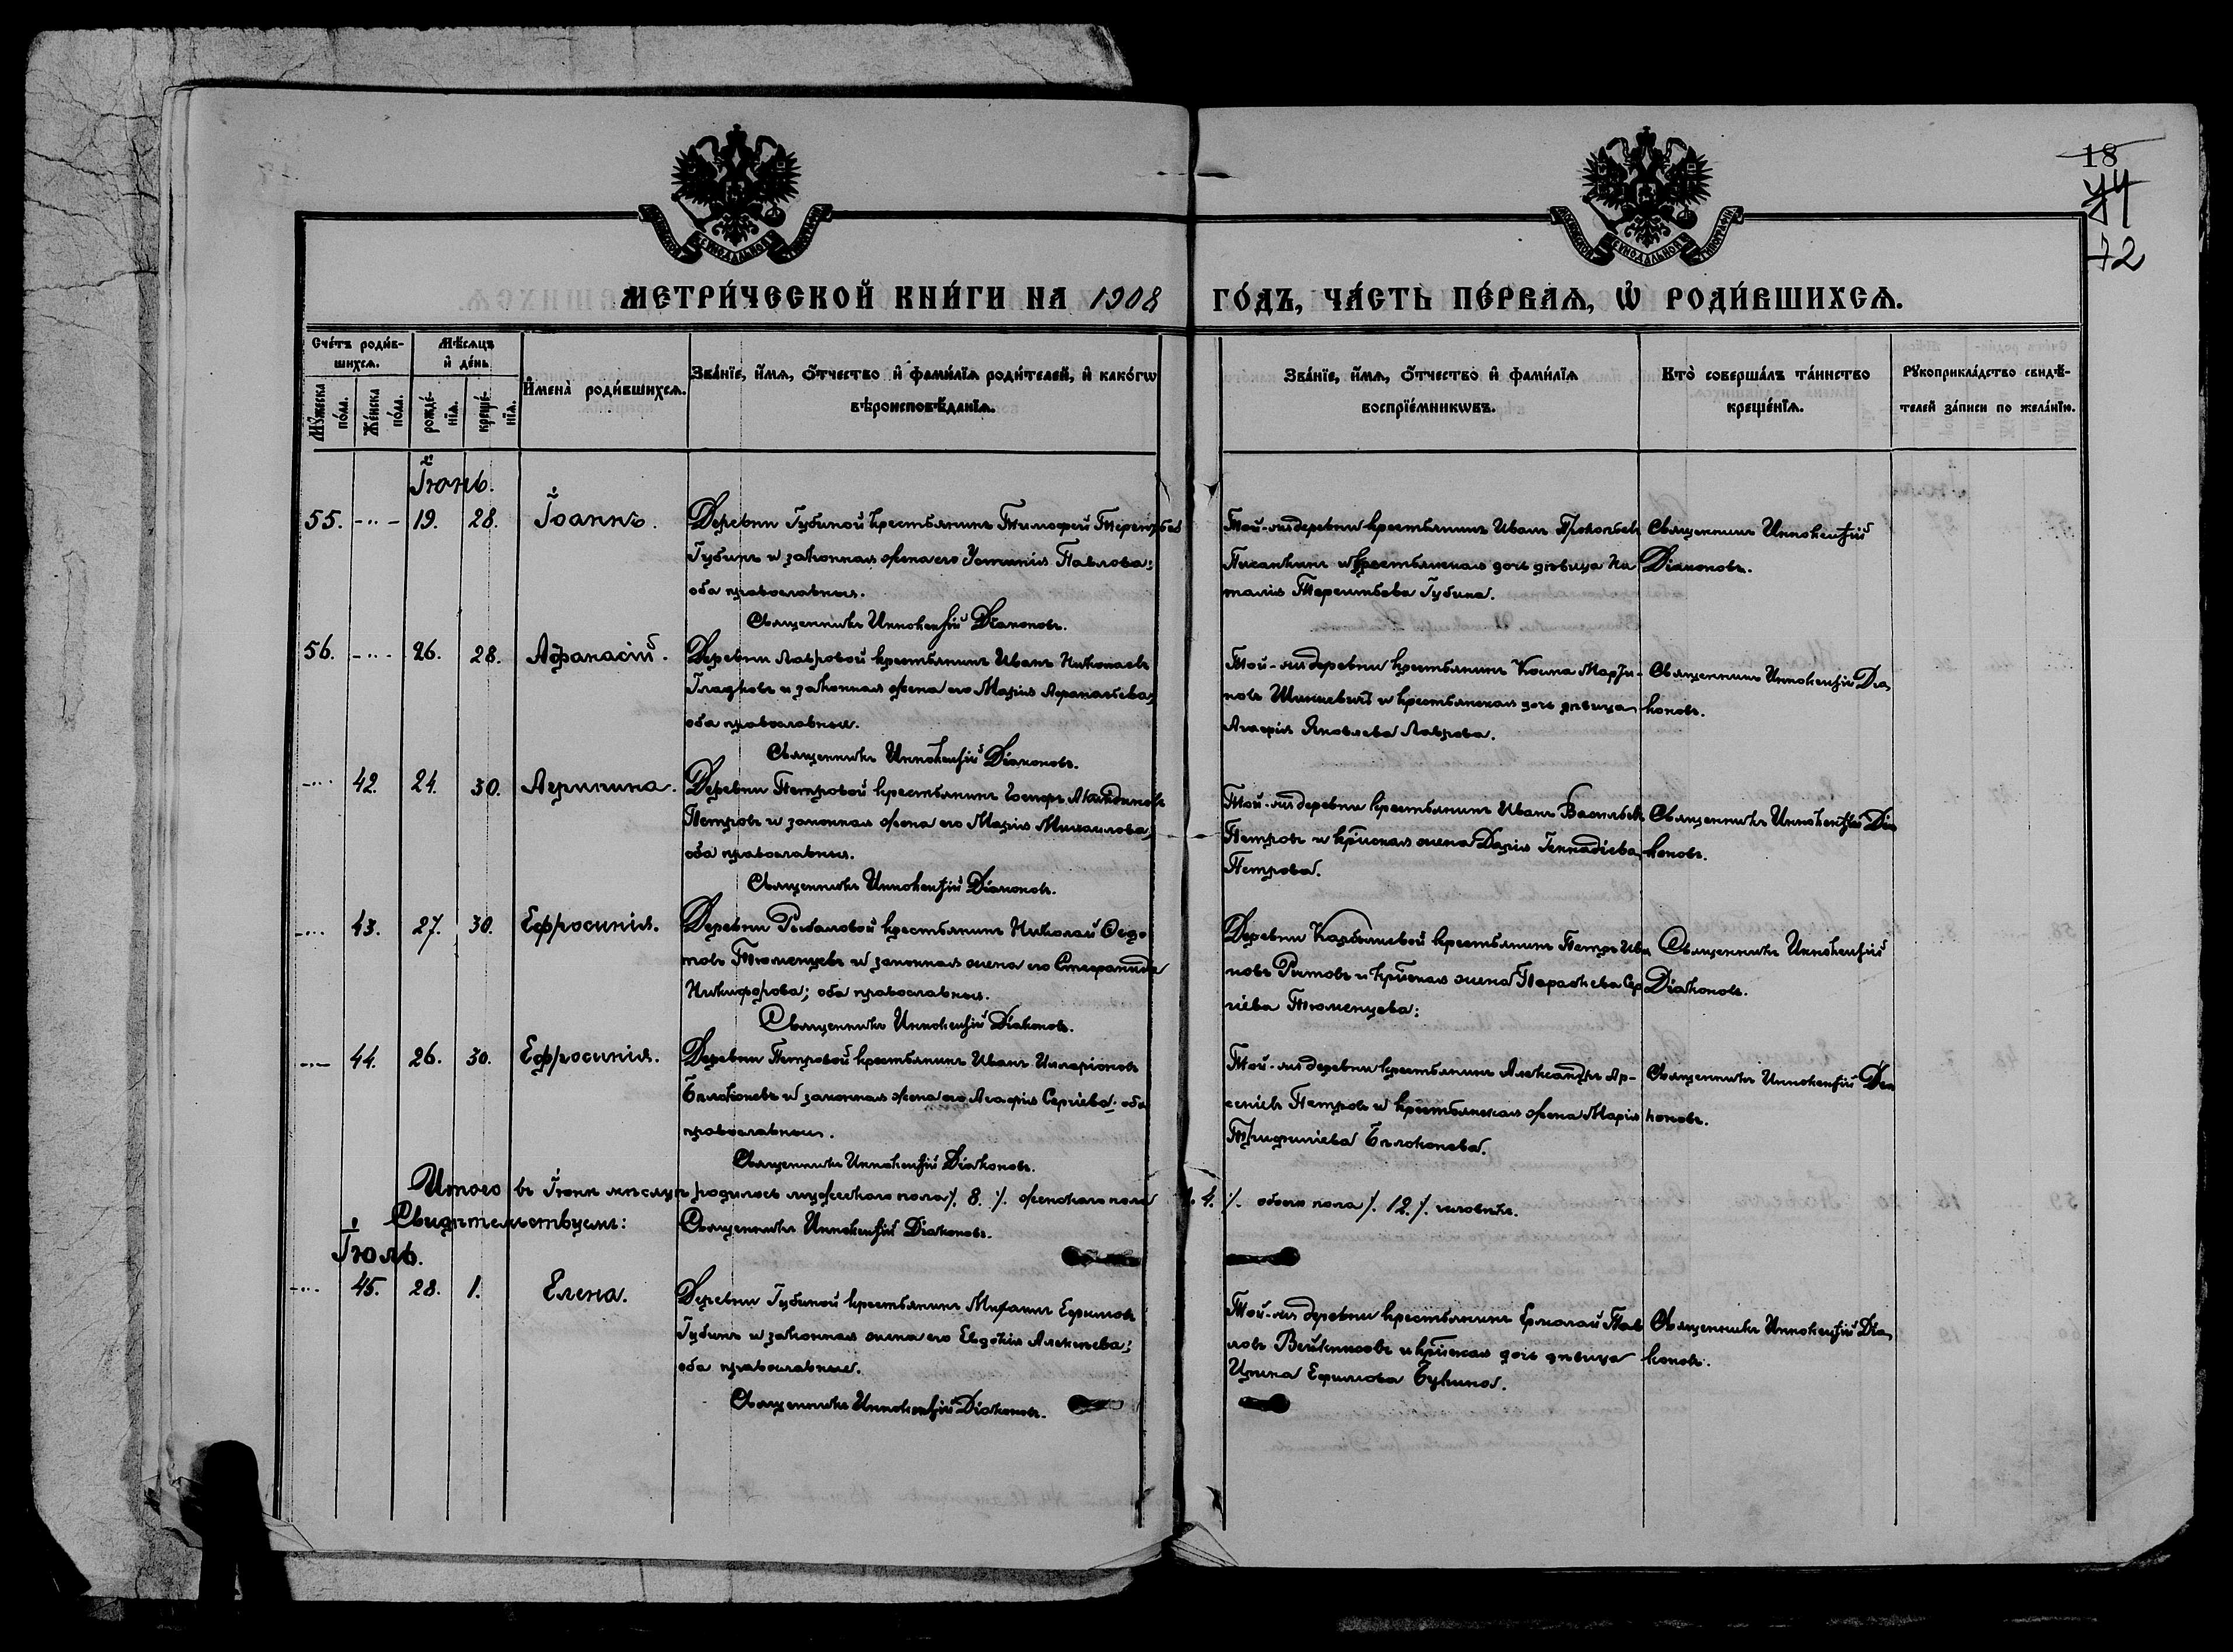 18
74
72
МЕТРИ́ЧЕСКОЙ КНИ́ГИ НА 1908 ГО́ДЪ, ЧА́СТЬ ПЕ́РВАѦ, Ѡ҆ РОДИ́ВШИХСѦ.
Сче́тъ роди́в-
шихсѧ.
Мѣ́сяцъ
и҆ де́нь
Мꙋ́жеска
по́ла.
Же́нска
по́ла.
рожде́-
нїѧ.
креще́-
нїѧ.
И҆мена̀ роди́вшихсѧ.
Зва́нїе, и҆́мѧ, ѻ҆́тчество и҆ фами́лїѧ роди́телей, и҆ како́гѡ
вѣроисповѣ́данїѧ.
Зва́нїе, и҆́мѧ, ѻ҆́тчество и҆ фами́лїѧ
воспрїе́мникѡвъ.
Кто̀ соверша́лъ та́инство
креще́нїѧ.
Рꙋкоприкла́дство свидѣ́-
телей за́писи по жела́нїю.
Іюнь.
55. 19. 28. Іоаннъ.
Деревни Губиной крестьянинъ Тимофей Терентьевъ
Губинъ и законная жена его Устинія Павлова;
оба православные.
Священникъ Иннокентій Діаконовъ.
Той-же деревни крестьянинъ Иванъ Прокопьевъ
и крестьянская дочь дѣвица На
талія Терентьева Губина.
Священникъ Иннокентій
Діаконовъ.
56. 26. 28. Афанасій.
Деревни Лавровой крестьянинъ Иванъ Николаевъ
Гладковъ и законная жена его Марія Афанасьева;
оба православные.
Священникъ Иннокентій Діаконовъ.
Той-же деревни крестьянинъ Косма Марти-
новъ и крестьянская дочь дѣвица
Агафія Яковлева Лаврова.
Священникъ Иннокентій Діа
коновъ.
42. 24. 30. Агрипина.
Деревни Петровой крестьянинъ Іосифъ
Петровъ и законная жена его Марія Михаилова;
оба православные.
Священникъ Иннокентій Діаконовъ.
Той-же деревни крестьянинъ Иванъ Васильевъ
Петровъ и кр̃нская жена Дарія Геннадіева
Петрова.
Священникъ Иннокентій Діа
коновъ.
43. 27. 30. Ефросинія.
Деревни Рыбаловой крестьянинъ Николай Ѳедо
товъ Тюменцевъ и законная жена его Стефанида
Никифорова; оба православные.
Священникъ Иннокентій Діаконовъ.
Деревни крестьянинъ Петръ Ива
новъ и кр̃нская жена Параскева Сер
гіева Тюменцева:
Священникъ Иннокентій
Діаконовъ.
44. 26. 30. Ефросинія.
Деревни Петровой крестьянинъ Иванъ Илларіоновъ
Бѣлоконевъ и законная жена его Агафія Сергіева; оба
православные.
Священникъ Иннокентій Діаконовъ.
Той-же деревни крестьянинъ Александръ Ар-
сеніевъ Петровъ и крестьянская жена Марія
Бѣлоконева.
Священникъ Иннокентій Діа
коновъ.
Итого въ Іюнѣ мѣсяцѣ родилось мужескаго пола /. 8. /. женскаго пола /. 4. /. обоего пола /. 12. /. человѣкъ.
Свидѣтельствуемъ: Священникъ Иннокентій Діаконовъ.
Іюль.
45. 28. 1. Елена.
Деревни Губиной крестьянинъ Ефимовъ
Губинъ и законная жена его Евдокія Алексѣева;
оба православные.
Священникъ Иннокентій Діаконовъ.
Той-же деревни крестьянинъ Ермолай Пав
ловъ и кр̃нская дочь дѣвица
Ефимова
Священникъ Иннокентій Діа
коновъ.